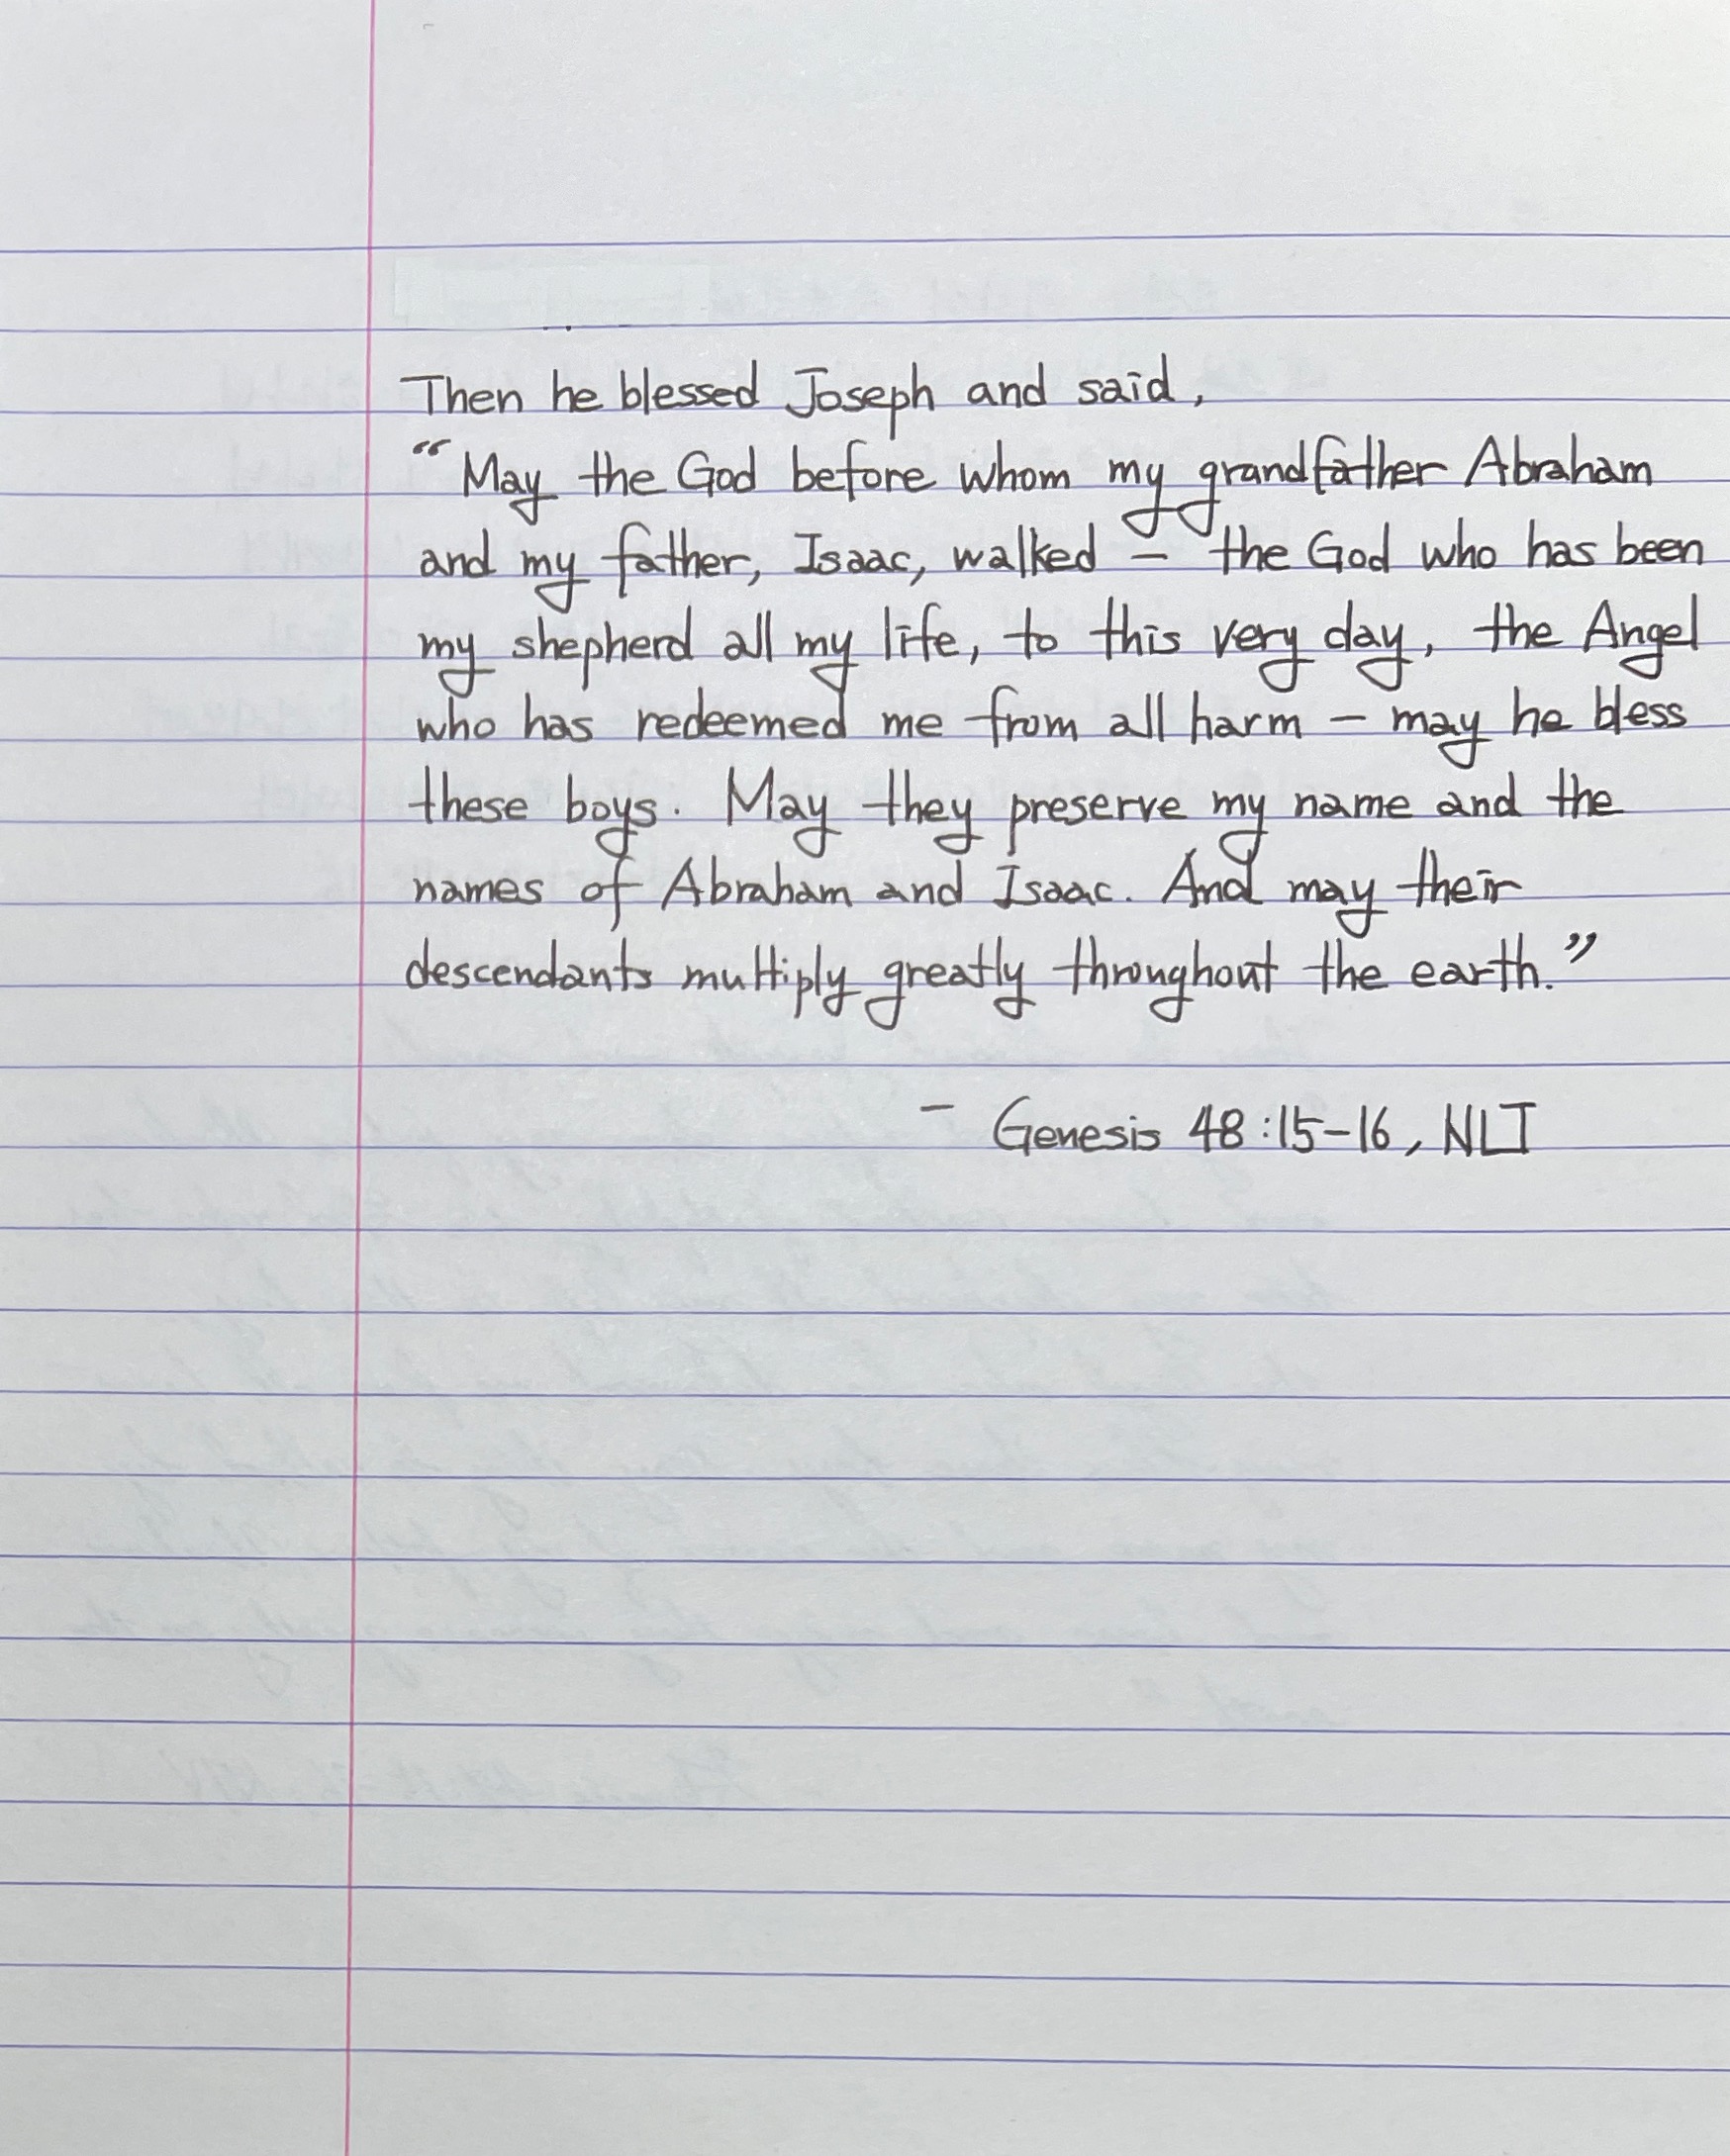 Then he blessed Joseph and said,
“May the God before whom my grandfather Abraham
and my father, Isaac, walked – the God who has been
my shepherd all my life, to this very day, the Angel
who has redeemed me from all harm – may he bless
these boys. May they preserve my name and the
names of Abraham and Isaac. And may their
descendants multiply greatly throughout the earth.”
– Genesis 48:15-16, NLT